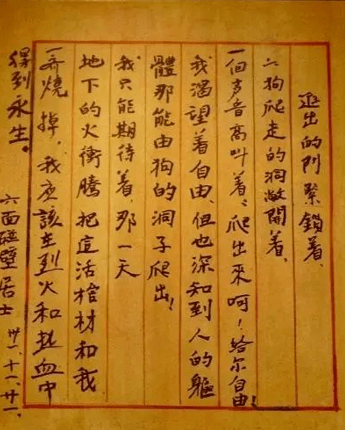 出的門緊鎖着,
狗爬走的洞敞開着、
一個声音高叫着:爬出來呵!給尔自由!
我渴望着自由,但也深知到人的軀
體那能由狗的洞子爬出!
我只能期待着,那一天
地下的火衝騰把這活棺材和我
一齊燒掉,我应該在烈火和热血中
得到永生。
六面碰壁居士 卅一、十一、廿一、